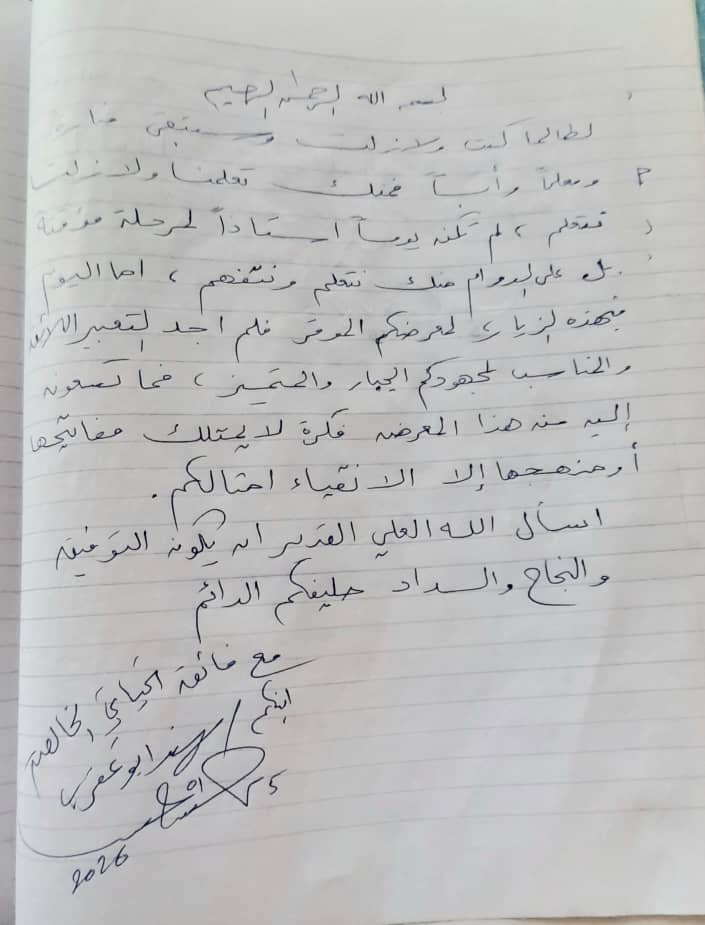 بسم الله الرحمن الرحيم
لطالما كنت ولازلت وستبقى منارة
ومعلماً وأباً فمنك تعلمنا ولازلت
نتعلم ، لم تكن يوماً استاذاً لمرحلة مؤقتة
بل على الدوام منك نتعلم ونتفهم ، اما اليوم
فبهذه الزيارة لمعرضكم الموقر فلم اجد التعبير اللائق
والمناسب لمجهودكم الجبار والمتميز ، فما تسعون
إليه من هذا المعرض فكرة لا يمتلك مفاتيحها
أو منهجها إلا الانقياء امثالكم .
اسأل الله العلي القدير ان يكون التوفيق
والنجاح والسداد حليفكم الدائم
مع فائق تحياتي الخالصة
ابنكم / ابو عقرب
25
2026